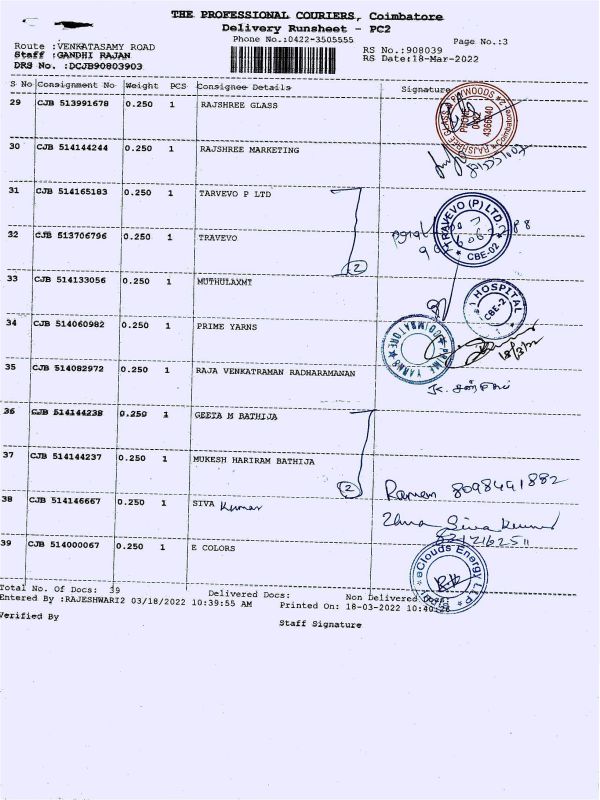 THE PROFESSIONAL COURIERS, Coimbatore
Delivery Runsheet - PC2
Phone No.:0422-3505555
Page No.:3
Route :VENKATASAMY ROAD
RS No.:908039
Staff :GANDHI RAJAN
RS Date:18-Mar-2022
DRS No. :DCJB90803903
S No Consignment No Weight PCS Consignee Details Signature
29 CJB 513991678 0.250 1 RAJSHREE GLASS
30 CJB 514144244 0.250 1 RAJSHREE MARKETING
31 CJB 514165183 0.250 1 TARVEVO P LTD
32 CJB 513706796 0.250 1 TRAVEVO
2
TRAVEVO (P) LTD.
CBE-02
33 CJB 514133056 0.250 1 MUTHULAXMI
HOSPITAL
CBE-2
34 CJB 514060982 0.250 1 PRIME YARNS
PRIME YARNS
COIMBATORE
18/3/22
35 CJB 514082972 0.250 1 RAJA VENKATRAMAN RADHARAMANAN
36 CJB 514144238 0.250 1 GEETA M BATHIJA
37 CJB 514144237 0.250 1 MUKESH HARIRAM BATHIJA
2
Ramen 8098491882
38 CJB 514146667 0.250 1 SIVA Kumar
Siva Kumar
39 CJB 514000067 0.250 1 E COLORS
eClouds Energy LLP
Total No. Of Docs: 39 Delivered Docs: Non Delivered Docs:
Entered By :RAJESHWARI2 03/18/2022 10:39:55 AM Printed On: 18-03-2022 10:40:26
Verified By
Staff Signature